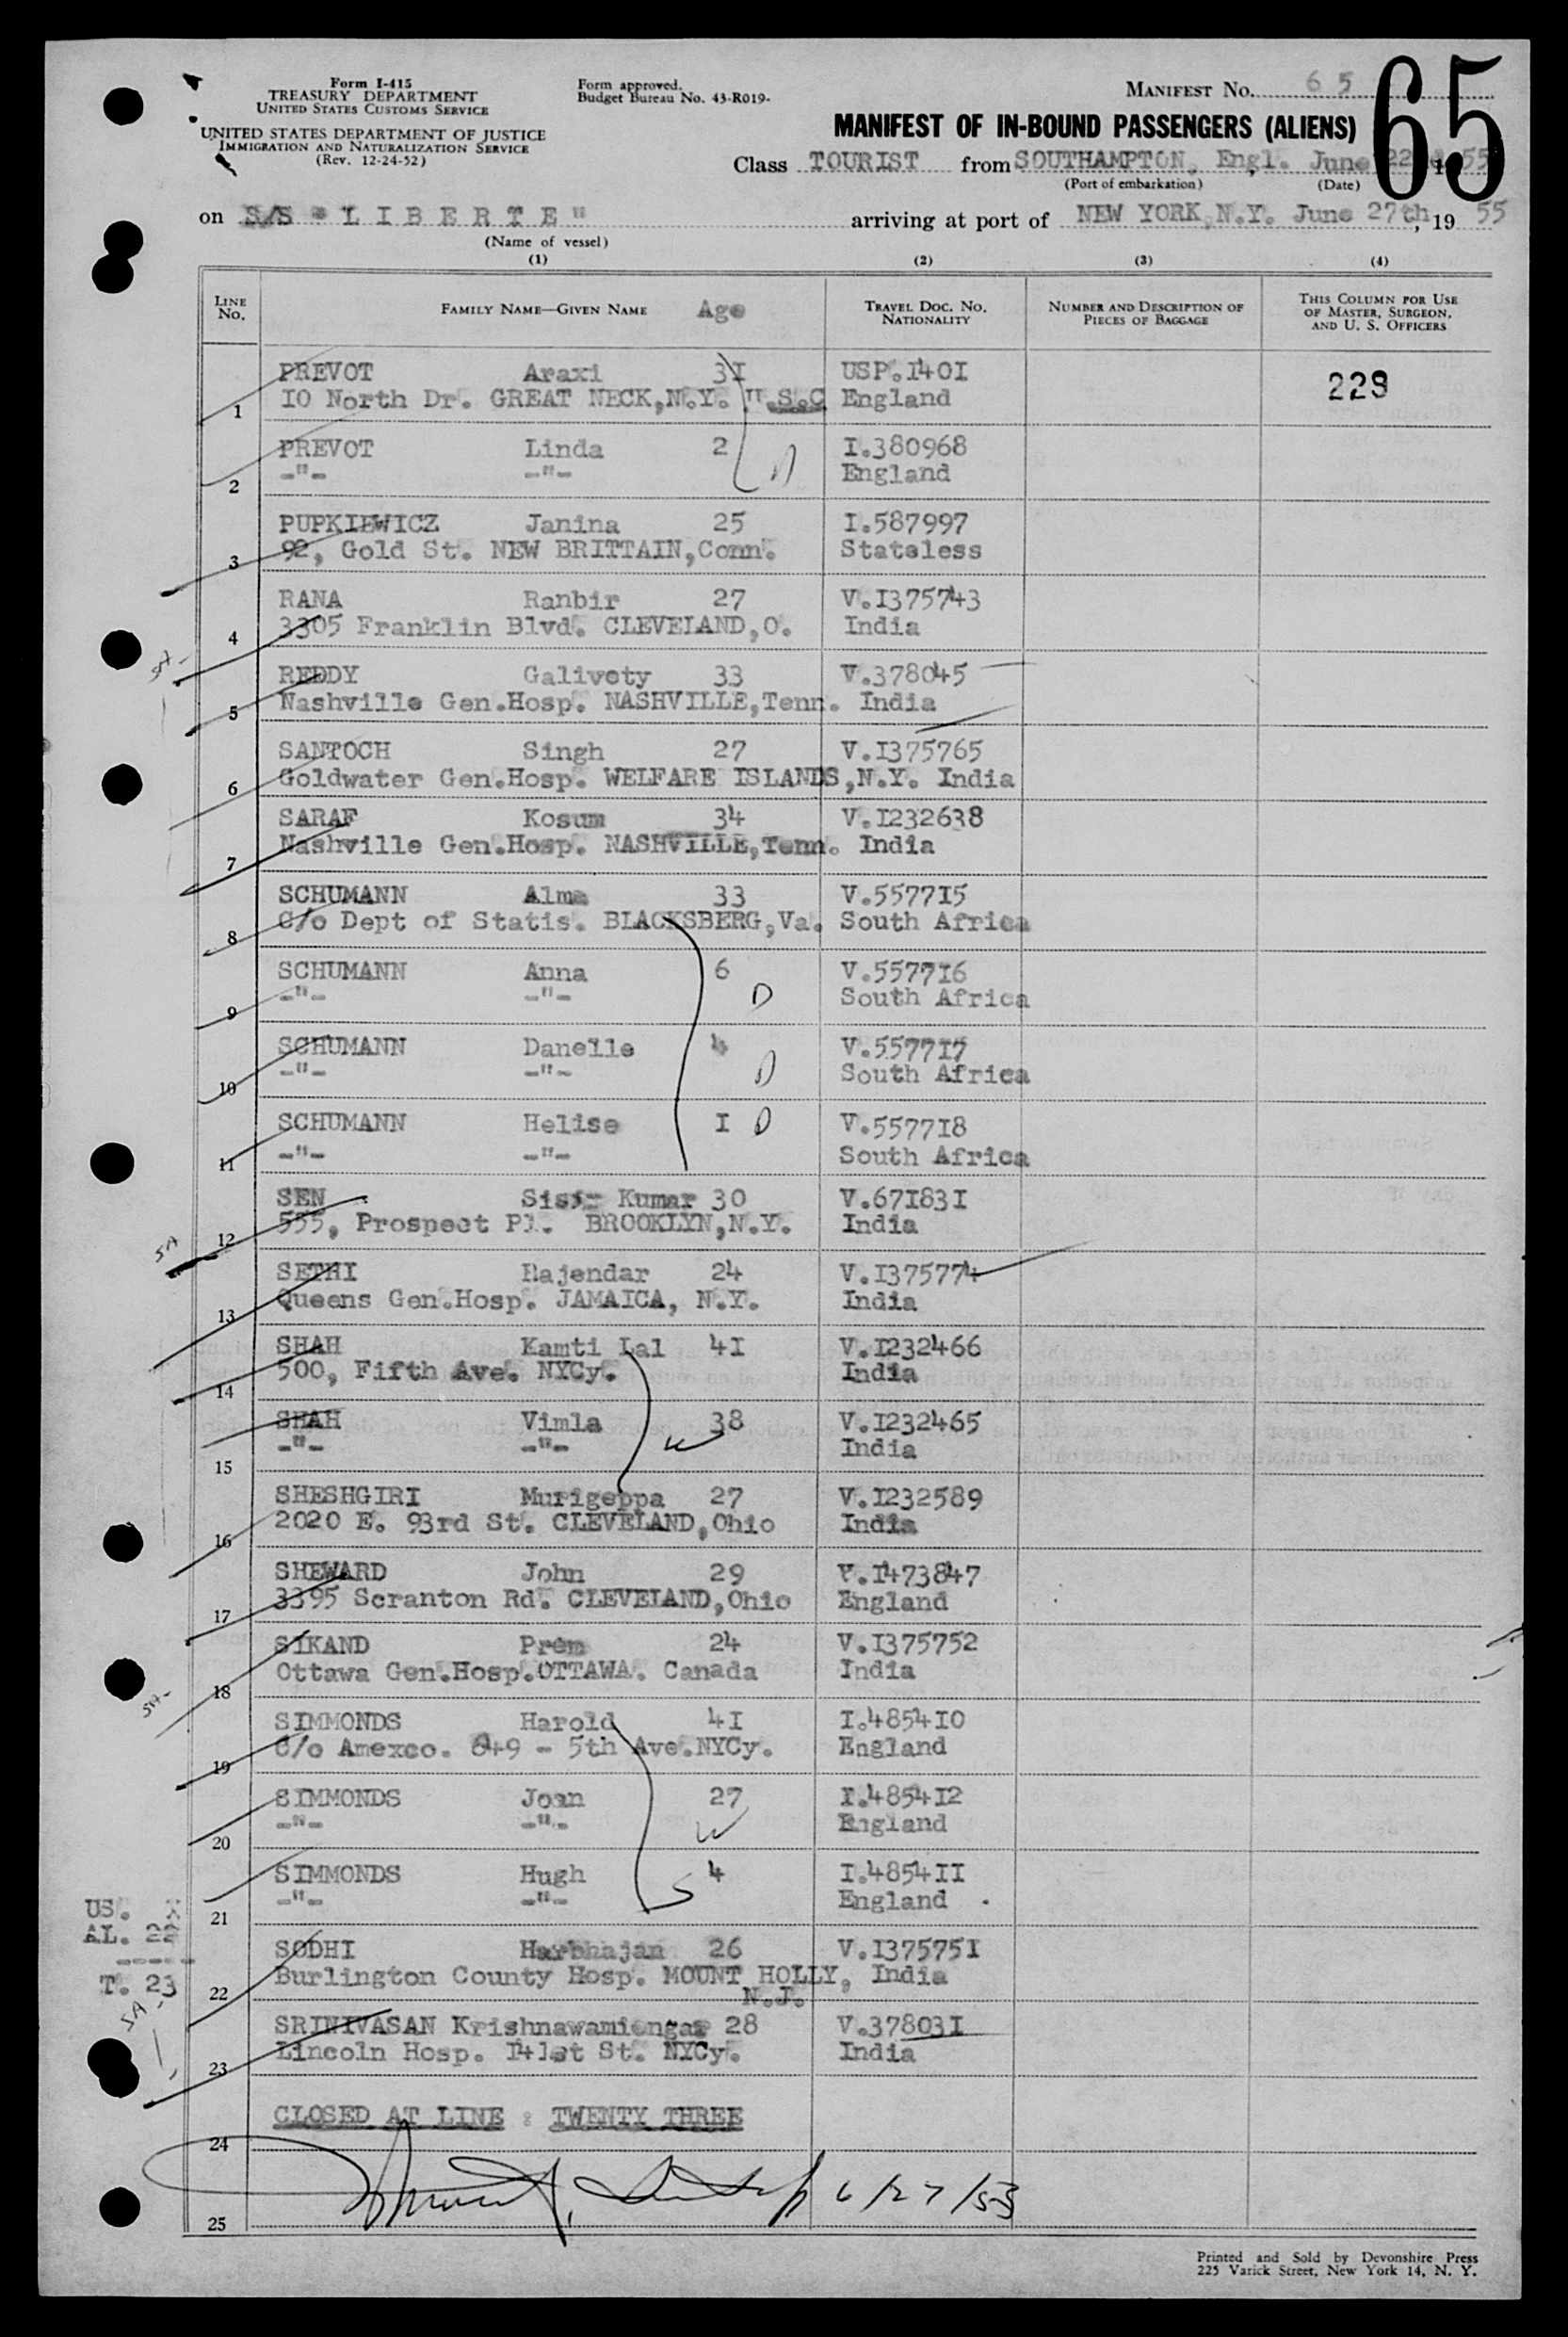 Form I-415
TREASURY DEPARTMENT
UNITED STATES CUSTOMS SERVICE
UNITED STATES DEPARTMENT OF JUSTICE
IMMIGRATION AND NATURALIZATION SERVICE
(Rev. 12-24-52)
Form approved.
Budget Bureau No. 43-R019-
MANIFEST NO. 65
65
MANIFEST OF IN-BOUND PASSENGERS (ALIENS)
Class TOURIST from SOUTHAMPTON, Engl. June 22 1955
(Port of embarkation) (Date)
on S/S "LIBERTE" arriving at port of NEW YORK, N.Y. June 27th, 1955
(Name of vessel)
(1) (2) (3) (4)
LINE No. FAMILY NAME—GIVEN NAME Age TRAVEL DOC. NO. NATIONALITY NUMBER AND DESCRIPTION OF PIECES OF BAGGAGE THIS COLUMN FOR USE OF MASTER, SURGEON, AND U. S. OFFICERS
PREVOT Araxi 3I USP.I40I 229
1 I0 North Dr. GREAT NECK,N.Y. U.S.C England
PREVOT Linda 2 I.380968
2 -"- -"- England
PUPKIEWICZ Janina 25 I.587997
3 92, Gold St. NEW BRITTAIN,Conn. Stateless
RANA Ranbir 27 V.I375743
4 3305 Franklin Blvd. CLEVELAND,O. India
REDDY Galivety 33 V.378045
5 Nashville Gen.Hosp. NASHVILLE,Tenn. India
SANTOCH Singh 27 V.I375765
6 Goldwater Gen.Hosp. WELFARE ISLANDS,N.Y. India
SARAF Kosum 34 V.I232638
7 Nashville Gen.Hosp. NASHVILLE,Tenn. India
SCHUMANN Alma 33 V.5577I5
8 C/o Dept of Statis. BLACKSBERG,Va. South Africa
SCHUMANN Anna 6 V.5577I6
9 -"- -"- D South Africa
SCHUMANN Danelle 4 V.5577I7
10 -"- -"- D South Africa
SCHUMANN Helise I D V.5577I8
11 -"- -"- South Africa
SEN Sisir Kumar 30 V.67I83I
12 555, Prospect Pl. BROOKLYN,N.Y. India
SETHI Rajendar 24 V.I375774
13 Queens Gen.Hosp. JAMAICA, N.Y. India
SHAH Kamti Lal 4I V.I232466
14 500, Fifth Ave. NYCy. India
SHAH Vimla 38 V.I232465
15 -"- -"- W India
SHESHGIRI Murigeppa 27 V.I232589
16 2020 E. 93rd St. CLEVELAND,Ohio India
SHEWARD John 29 V.I473847
17 3395 Scranton Rd. CLEVELAND,Ohio England
SIKAND Prem 24 V.I375752
18 Ottawa Gen.Hosp.OTTAWA. Canada India
SIMMONDS Harold 4I I.4854I0
19 C/o Amexco. 649 - 5th Ave.NYCy. England
SIMMONDS Joan 27 I.4854I2
20 -"- -"- W England
SIMMONDS Hugh 4 I.4854II
21 -"- -"- S England
US.
AL. 22
T. 23
SODHI Harbhajan 26 V.I37575I
22 Burlington County Hosp. MOUNT HOLLY, India
N.J.
SRINIVASAN Krishnawamiengar 28 V.37803I
23 Lincoln Hosp. I4Ist St. NYCy. India
CLOSED AT LINE : TWENTY THREE
24
25 6/27/55
Printed and Sold by Devonshire Press
225 Varick Street, New York 14, N. Y.